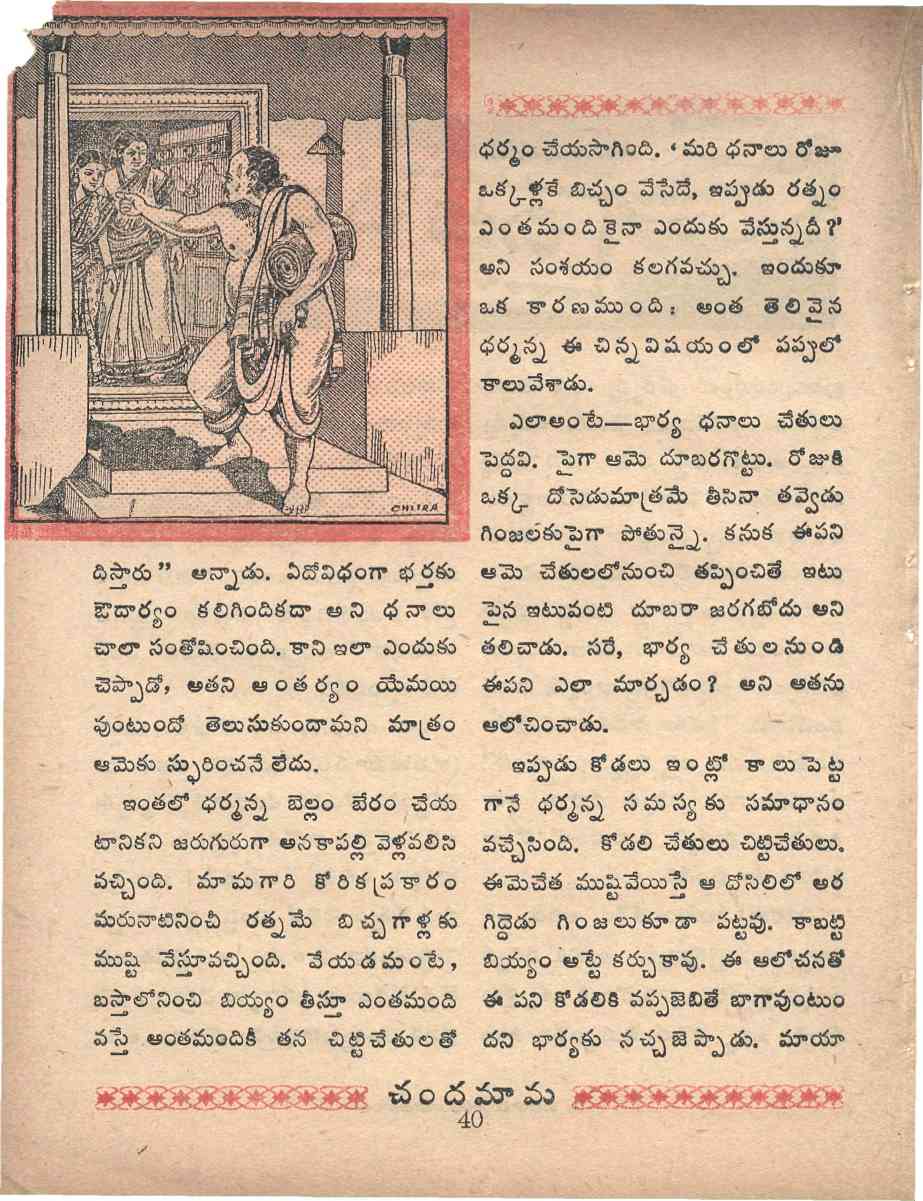 CHITRA
దిస్తారు” అన్నాడు. ఏదోవిధంగా భర్తకు
ఔదార్యం కలిగిందికదా అని ధనాలు
చాలా సంతోషించింది. కాని ఇలా ఎందుకు
చెప్పాడో, అతని ఆంతర్యం యేమయి
వుంటుందో తెలుసుకుందామని మాత్రం
ఆమెకు స్ఫురించనే లేదు.
ఇంతలో ధర్మన్న బెల్లం బేరం చేయ
టానికని జరుగురుగా అనకాపల్లి వెళ్లవలిసి
వచ్చింది. మామగారి కోరికప్రకారం
మరునాటినించీ రత్నమే బిచ్చగాళ్లకు
ముష్టి వేస్తూవచ్చింది. వేయడమంటే,
బస్తాలోనించి బియ్యం తీస్తూ ఎంతమంది
వస్తే అంతమందికీ తన చిట్టిచేతులతో
ధర్మం చేయసాగింది. ‘మరి ధనాలు రోజూ
ఒక్కళ్లకే బిచ్చం వేసేదే, ఇప్పుడు రత్నం
ఎంతమందికైనా ఎందుకు వేస్తున్నదీ?’
అని సంశయం కలగవచ్చు. ఇందుకూ
ఒక కారణముంది: అంత తెలివైన
ధర్మన్న ఈ చిన్నవిషయంలో పప్పులో
కాలువేశాడు.
ఎలాఅంటే—భార్య ధనాలు చేతులు
పెద్దవి. పైగా ఆమె దూబరగొట్టు. రోజుకి
ఒక్క దోసెడుమాత్రమే తీసినా తవ్వెడు
గింజలకుపైగా పోతున్నై. కనుక ఈపని
ఆమె చేతులలోనుంచి తప్పించితే ఇటు
పైన ఇటువంటి దూబరా జరగబోదు అని
తలిచాడు. సరే, భార్య చేతులనుండి
ఈపని ఎలా మార్చడం? అని అతను
ఆలోచించాడు.
ఇప్పుడు కోడలు ఇంట్లో కాలుపెట్ట
గానే ధర్మన్న సమస్యకు సమాధానం
వచ్చేసింది. కోడలి చేతులు చిట్టిచేతులు.
ఈమెచేత ముష్టివేయిస్తే ఆ దోసిలిలో అర
గిద్దెడు గింజలుకూడా పట్టవు. కాబట్టి
బియ్యం అట్టే కర్చుకావు. ఈ ఆలోచనతో
ఈ పని కోడలికి వప్పజెబితే బాగావుంటుం
దని భార్యకు నచ్చజెప్పాడు. మాయా
చందమామ
40